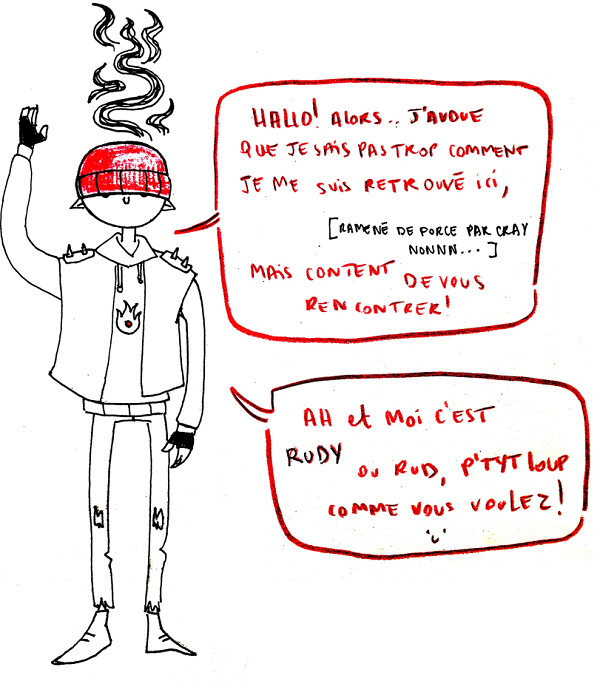 HALLO! ALORS.. J'AVOUE
QUE JE SAIS PAS TROP COMMENT
JE ME SUIS RETROUVÉ ICI,
[RAMENÉ DE FORCE PAR CRAY
NONNN...]
MAIS CONTENT DE VOUS
RENCONTRER!
AH et MOI C'EST
RUDY OU RUD, P'TYT LOUP
COMME VOUS VOULEZ!